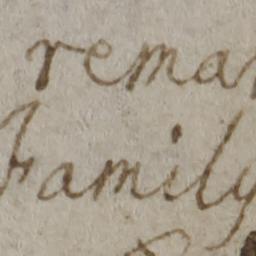 remar
Family